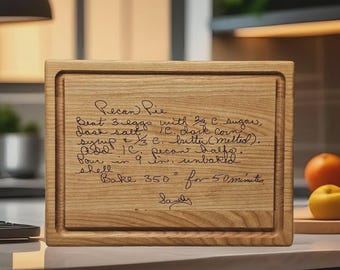 Pecan Pie
Beat 3 eggs with 2/3 C. sugar,
dash salt, 1C. dark corn
syrup & 1/3 C. butter (melted).
Add 1 C. pecan halfs.
Pour in 9 in. unbaked
shell.
Bake 350° for 50 minutes